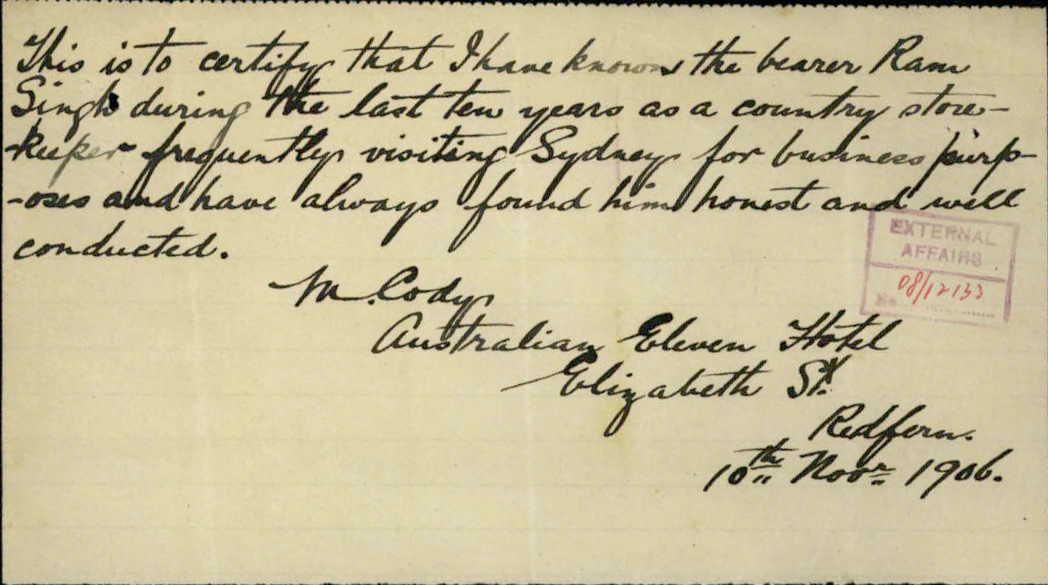 This is to certify that I have known the bearer Ram
Singh during the last ten years as a country store-
-keeper frequently visiting Sydney for business purp-
-oses and have always found him honest and well
conducted.
M. Cody
Australian Eleven Hotel
Elizabeth St.
Redfern.
10th Novr 1906.
EXTERNAL
AFFAIRS
08/12133
No